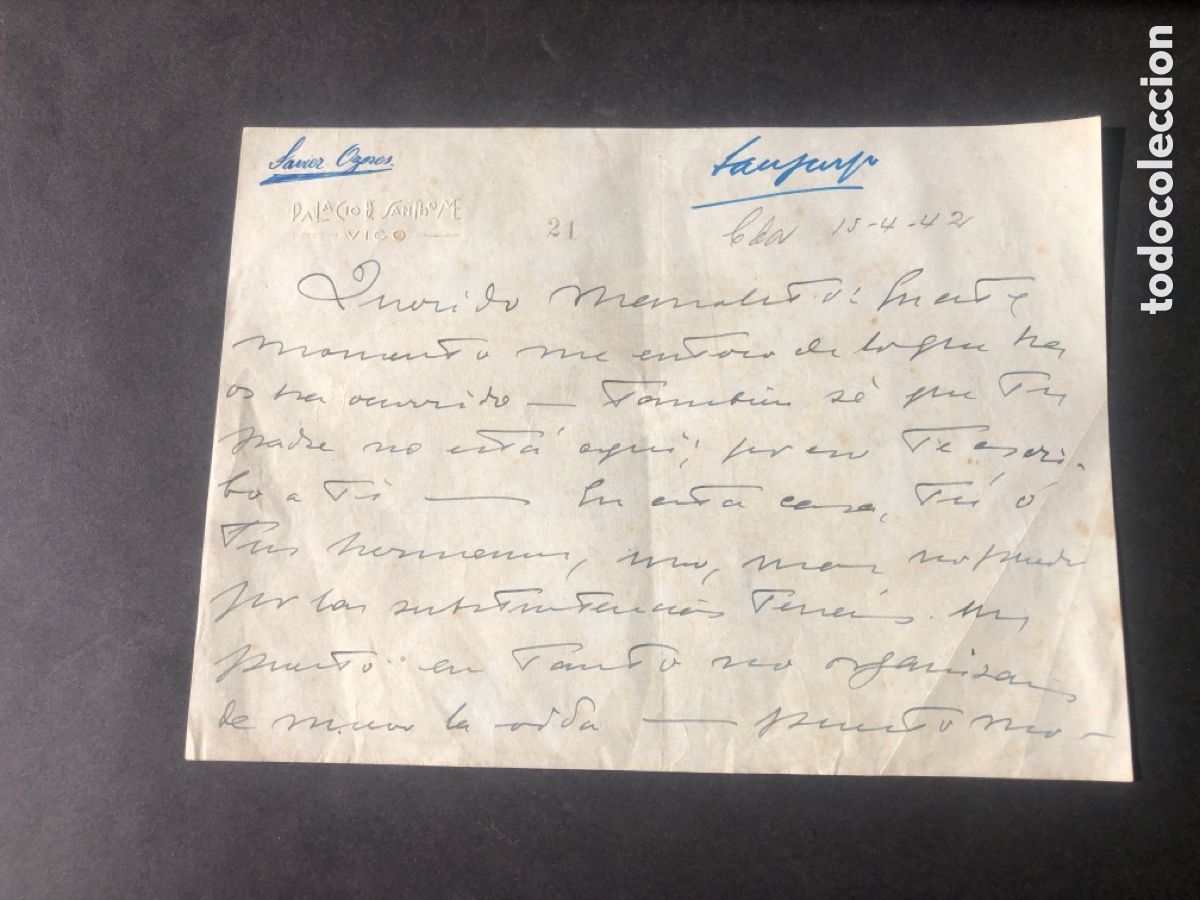 Javier Ozores
Sanjurjo
PALACIO DE SANTHOME
VIGO
21
Cda 15-4-42
Querido Manolito: En este
momento me entero de lo que ha
os ha ocurrido — También sé que Tu
padre no está aquí; por eso Te escri-
bo a Ti — En esta casa, Tú o
Tus hermanos, uno, mas no puedo
por las subsistencias Tenéis un
puesto en Tanto no organizais
de nuevo la vida — puesto mo-
todocoleccion